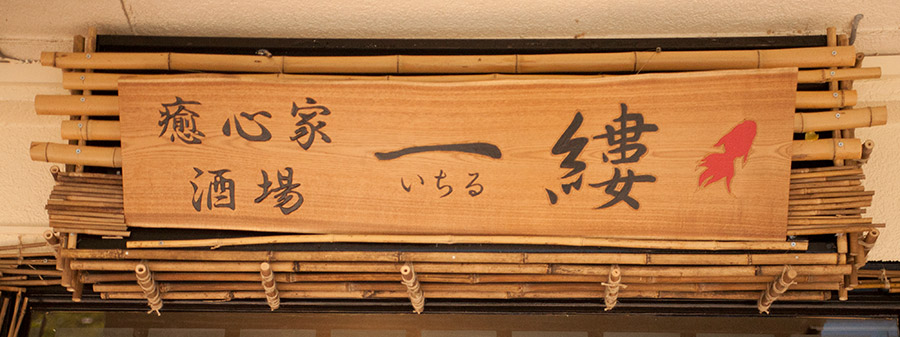 癒心家
酒場
一縷
いちる